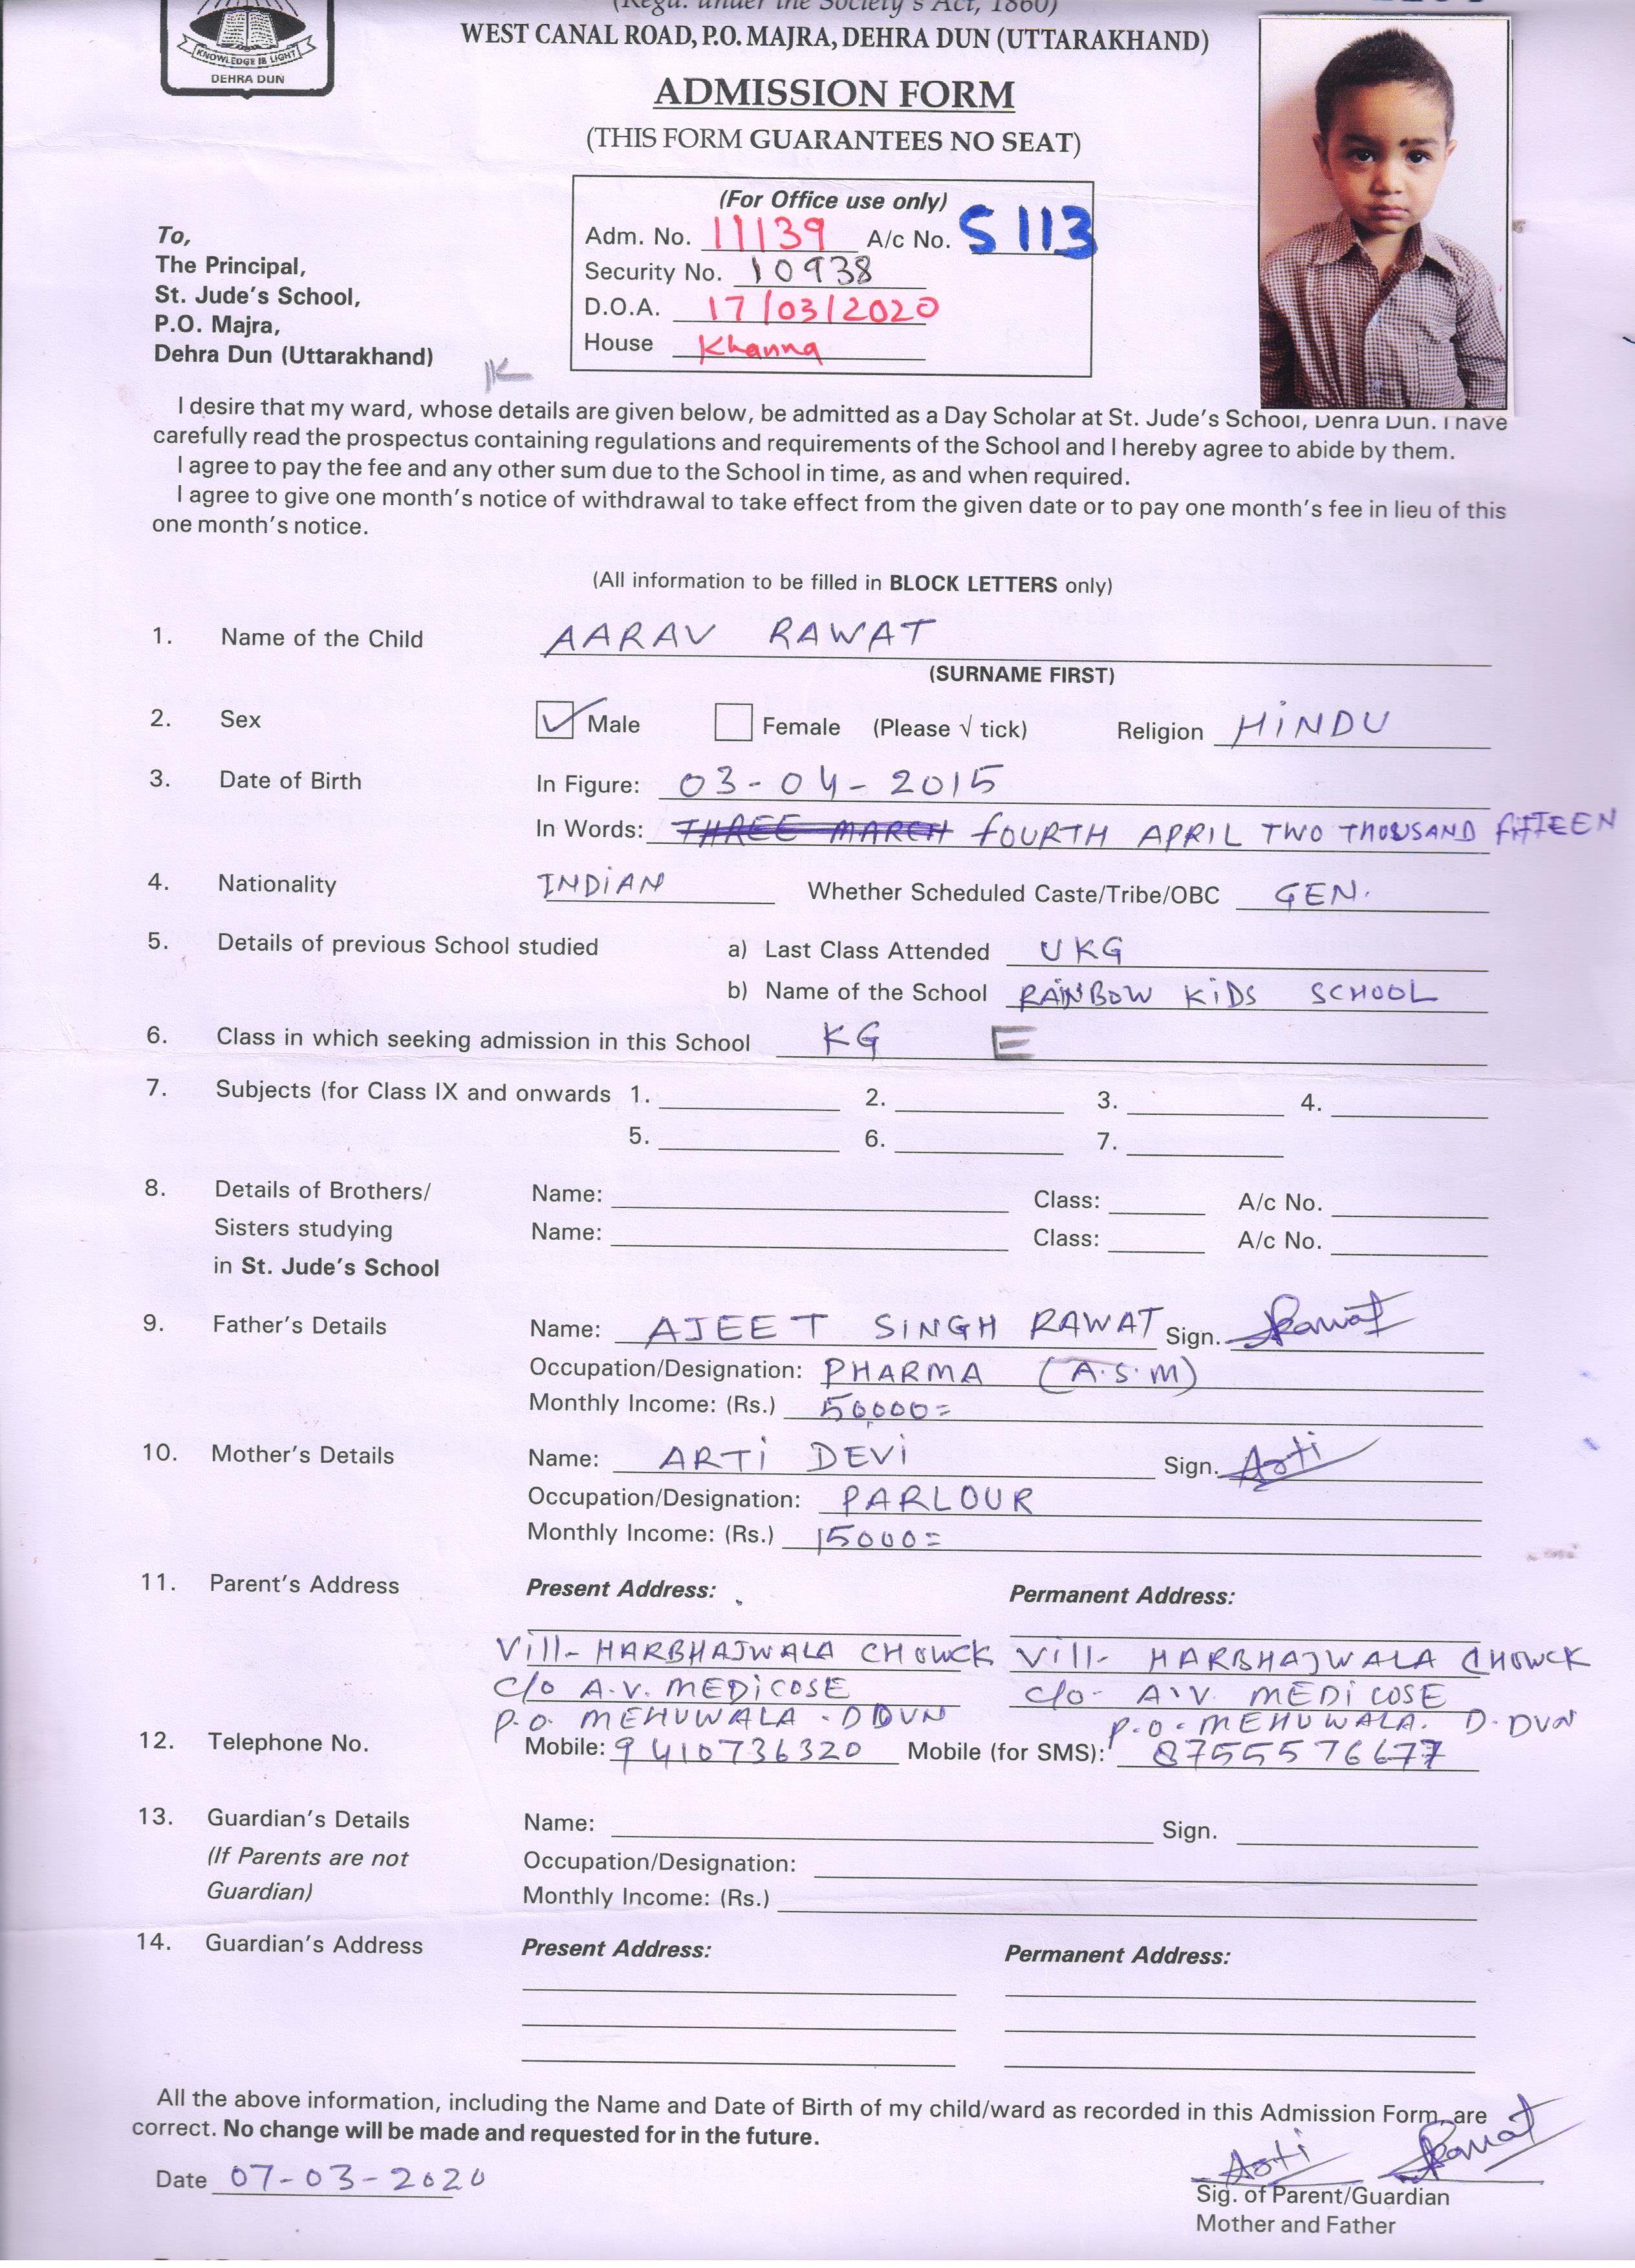 (Regd. under the Society's Act, 1860)
WEST CANAL ROAD, P.O. MAJRA, DEHRA DUN (UTTARAKHAND)
KNOWLEDGE IS LIGHT
DEHRA DUN
ADMISSION FORM
(THIS FORM GUARANTEES NO SEAT)
(For Office use only)
Adm. No. 11139 A/c No. S 113
Security No. 10938
D.O.A. 17/03/2020
House Khanna
To,
The Principal,
St. Jude's School,
P.O. Majra,
Dehra Dun (Uttarakhand)
I desire that my ward, whose details are given below, be admitted as a Day Scholar at St. Jude's School, Dehra Dun. I have
carefully read the prospectus containing regulations and requirements of the School and I hereby agree to abide by them.
I agree to pay the fee and any other sum due to the School in time, as and when required.
I agree to give one month's notice of withdrawal to take effect from the given date or to pay one month's fee in lieu of this
one month's notice.
(All information to be filled in BLOCK LETTERS only)
1. Name of the Child AARAV RAWAT
(SURNAME FIRST)
2. Sex Male Female (Please √ tick) Religion HINDU
3. Date of Birth In Figure: 03-04-2015
In Words: THREE MARCH FOURTH APRIL TWO THOUSAND FIFTEEN
4. Nationality INDIAN Whether Scheduled Caste/Tribe/OBC GEN.
5. Details of previous School studied a) Last Class Attended UKG
b) Name of the School RAINBOW KIDS SCHOOL
6. Class in which seeking admission in this School KG E
7. Subjects (for Class IX and onwards 1. 2. 3. 4.
5. 6. 7.
8. Details of Brothers/ Name: Class: A/c No.
Sisters studying Name: Class: A/c No.
in St. Jude's School
9. Father's Details Name: AJEET SINGH RAWAT Sign. Rawat
Occupation/Designation: PHARMA (A.S.M)
Monthly Income: (Rs.) 50000=
10. Mother's Details Name: ARTI DEVI Sign. Arti
Occupation/Designation: PARLOUR
Monthly Income: (Rs.) 15000=
11. Parent's Address Present Address: Permanent Address:
Vill- HARBHAJWALA CHOWCK Vill- HARBHAJWALA CHOWCK
C/o A.V. MEDICOSE C/o- A.V. MEDICOSE
P.O. MEHUWALA - DDUN P.O. MEHUWALA. D.DUN
12. Telephone No. Mobile: 9410736320 Mobile (for SMS): 8755576677
13. Guardian's Details Name: Sign.
(If Parents are not Occupation/Designation:
Guardian) Monthly Income: (Rs.)
14. Guardian's Address Present Address: Permanent Address:
All the above information, including the Name and Date of Birth of my child/ward as recorded in this Admission Form, are
correct. No change will be made and requested for in the future.
Date 07-03-2020 Arti Rawat
Sig. of Parent/Guardian
Mother and Father